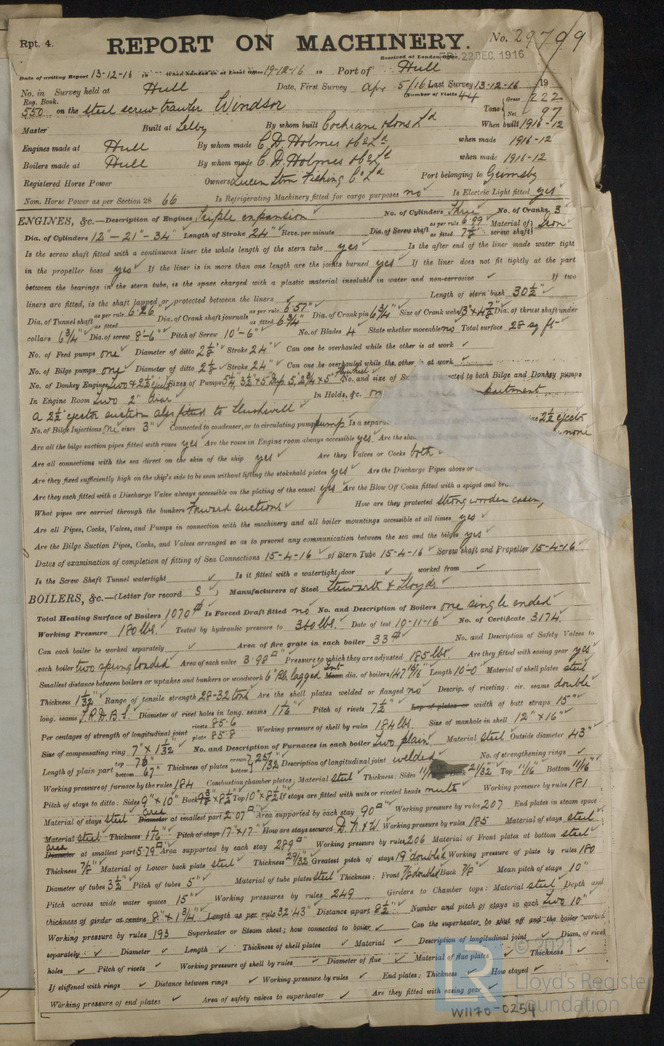 Rpt. 4. REPORT ON MACHINERY. No. 29799
Received at London Office FRI. 22 DEC. 1916
Date of writing Report 13-12-16 When handed in at Local Office 19-12-16 Port of Hull
No. in Survey held at Hull Date, First Survey Apr 5/16 Last Survey 13-12-16 19
Reg. Book. (Number of Visits 44)
550 on the steel screw trawler Windsor Tons Gross 222 Net 97
Master Built at Selby By whom built Cochrane & Sons Ld When built 1916-12
Engines made at Hull By whom made C. D. Holmes & Co Ld when made 1916-12
Boilers made at Hull By whom made C. D. Holmes & Co Ld when made 1916-12
Registered Horse Power Owners Queen Stm Fishing Co Ld Port belonging to Grimsby
Nom. Horse Power as per Section 28 66 Is Refrigerating Machinery fitted for cargo purposes no Is Electric Light fitted yes
ENGINES, &c.—Description of Engines Triple expansion No. of Cylinders Three No. of Cranks 3
Dia. of Cylinders 12"-21"-34" Length of Stroke 24" Revs. per minute Dia. of Screw shaft as per rule 6.99 as fitted 7½ Material of screw shaft Iron
Is the screw shaft fitted with a continuous liner the whole length of the stern tube yes Is the after end of the liner made water tight
in the propeller boss yes If the liner is in more than one length are the joints burned yes If the liner does not fit tightly at the part
between the bearings in the stern tube, is the space charged with a plastic material insoluble in water and non-corrosive If two
liners are fitted, is the shaft lapped or protected between the liners Length of stern bush 30½"
Dia. of Tunnel shaft as per rule 6.26 as fitted Dia. of Crank shaft journals as per rule 6.57 as fitted 6¾" Dia. of Crank pin 6¾" Size of Crank webs Dia. of thrust shaft under
collars 6¾" Dia. of screw 8'-6" Pitch of Screw 10'-6" No. of Blades 4 State whether moveable no Total surface 28 sq ft
No. of Feed pumps one Diameter of ditto 2½" Stroke 24" Can one be overhauled while the other is at work
No. of Bilge pumps one Diameter of ditto 2½" Stroke 24" Can one be overhauled while the other is at work
No. of Donkey Engines Sizes of Pumps No. and size of connected to both Bilge and Donkey pumps
In Engine Room Two 2" In Holds, &c.
A 2½" ejector suction also fitted to
No. of Bilge Injections one sizes 3" Connected to condenser, or to circulating pump pump Is a separate 2½ ejector
Are all the bilge suction pipes fitted with roses yes Are the roses in Engine room always accessible yes Are the none
Are all connections with the sea direct on the skin of the ship yes Are they Valves or Cocks both
Are they fixed sufficiently high on the ship's side to be seen without lifting the stokehold plates yes Are the Discharge Pipes above or
Are they each fitted with a Discharge Valve always accessible on the plating of the vessel yes Are the Blow Off Cocks fitted with a spigot and
What pipes are carried through the bunkers Forward suctions How are they protected strong wooden casing
Are all Pipes, Cocks, Valves, and Pumps in connection with the machinery and all boiler mountings accessible at all times yes
Are the Bilge Suction Pipes, Cocks, and Valves arranged so as to prevent any communication between the sea and the bilges yes
Dates of examination of completion of fitting of Sea Connections 15-4-16 of Stern Tube 15-4-16 Screw shaft and Propeller 15-4-16
Is the Screw Shaft Tunnel watertight Is it fitted with a watertight door worked from
BOILERS, &c.—(Letter for record S) Manufacturers of Steel Stewarts & Lloyds
Total Heating Surface of Boilers 1070 Is Forced Draft fitted no No. and Description of Boilers one single ended
Working Pressure 180 lbs Tested by hydraulic pressure to 360 lbs. Date of test 10-11-16 No. of Certificate 3174
Can each boiler be worked separately Area of fire grate in each boiler 33 No. and Description of Safety Valves to
each boiler two spring loaded Area of each valve 3.98 Pressure to which they are adjusted 185 lbs Are they fitted with easing gear yes
Smallest distance between boilers or uptakes and bunkers or woodwork 6" lagged dia. of boilers Length 10'-0 Material of shell plates steel
Thickness 1 1/32 Range of tensile strength 28-32 tons Are the shell plates welded or flanged no Descrip. of riveting: cir. seams double
long. seams T.R.D.B.S. Diameter of rivet holes in long. seams 1 1/16 Pitch of rivets 7½" Lap of plates or width of butt straps 15"
Per centages of strength of longitudinal joint rivets 85.6 plate 85.8 Working pressure of shell by rules 184 lbs. Size of manhole in shell 12" x 16"
Size of compensating ring 7" x 1 1/32 No. and Description of Furnaces in each boiler two plain Material steel Outside diameter 43"
Length of plain part top 76" bottom 67" Thickness of plates crown bottom Description of longitudinal joint welded No. of strengthening rings
Working pressure of furnace by the rules 184 Combustion chamber plates: Material steel Thickness: Sides Back 21/32 Top 11/16 Bottom 11/16
Pitch of stays to ditto: Sides 9" x 10" Back Top If stays are fitted with nuts or riveted heads nuts Working pressure by rules 181
Material of stays steel Area at smallest part 2.07 Area supported by each stay 90 Working pressure by rules 207 End plates in steam space
Material steel Thickness Pitch of stays 17" x 17" How are stays secured Working pressure by rules 185 Material of stays steel
Area at smallest part 5.79 Area supported by each stay 289 Working pressure by rules 206 Material of Front plates at bottom steel
Thickness 7/8 Material of Lower back plate steel Thickness 29/32 Greatest pitch of stays Working pressure of plate by rules 180
Diameter of tubes 3½ Pitch of tubes 5" Material of tube plates steel Thickness: Front Back 7/8 Mean pitch of stays 10"
Pitch across wide water spaces 15" Working pressures by rules 249 Girders to Chamber tops: Material steel Depth and
thickness of girder at centre 8" x 1¾" Length as per rule 32.43" Distance apart 8½ Number and pitch of stays in each two 10"
Working pressure by rules 193 Superheater or Steam chest; how connected to boiler Can the superheater be shut off and the boiler worked
separately Diameter Length Thickness of shell plates Material Description of longitudinal joint Diam. of rivet
holes Pitch of rivets Working pressure of shell by rules Diameter of flue Material of flue plates Thickness
If stiffened with rings Distance between rings Working pressure by rules End plates: Thickness How stayed
Working pressure of end plates Area of safety valves to superheater Are they fitted with easing gear
© 2021
Lloyd's Register
Foundation
W1170-0254